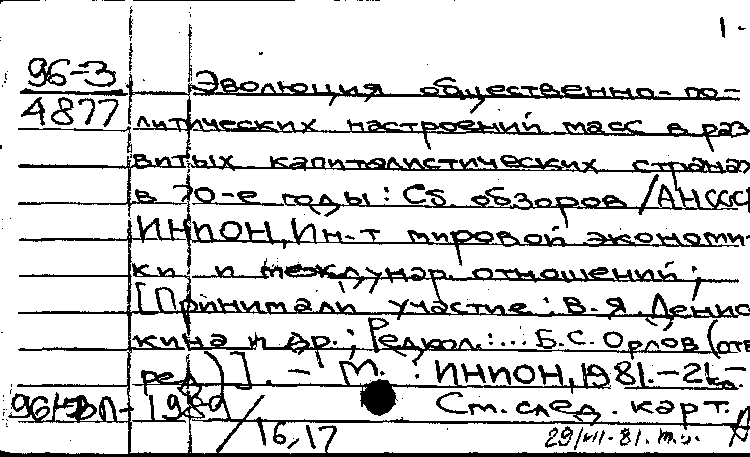 1-
96-3 Эволюция общественно-по-
4877 литических настроений масс в раз
витых капиталистических странах
в 70-е годы: Сб. обзоров /АН СССР
ИНИОН, Ин-т мировой экономи-
ки и междунар. отношений;
[Принимали участие: В.Я. Денис
кина и др.; Редкол.:... Б.С. Орлов (отв
ред)]. - М.: ИНИОН, 1981.-21см.-
См. след. карт.
16,17
29/VII-81.